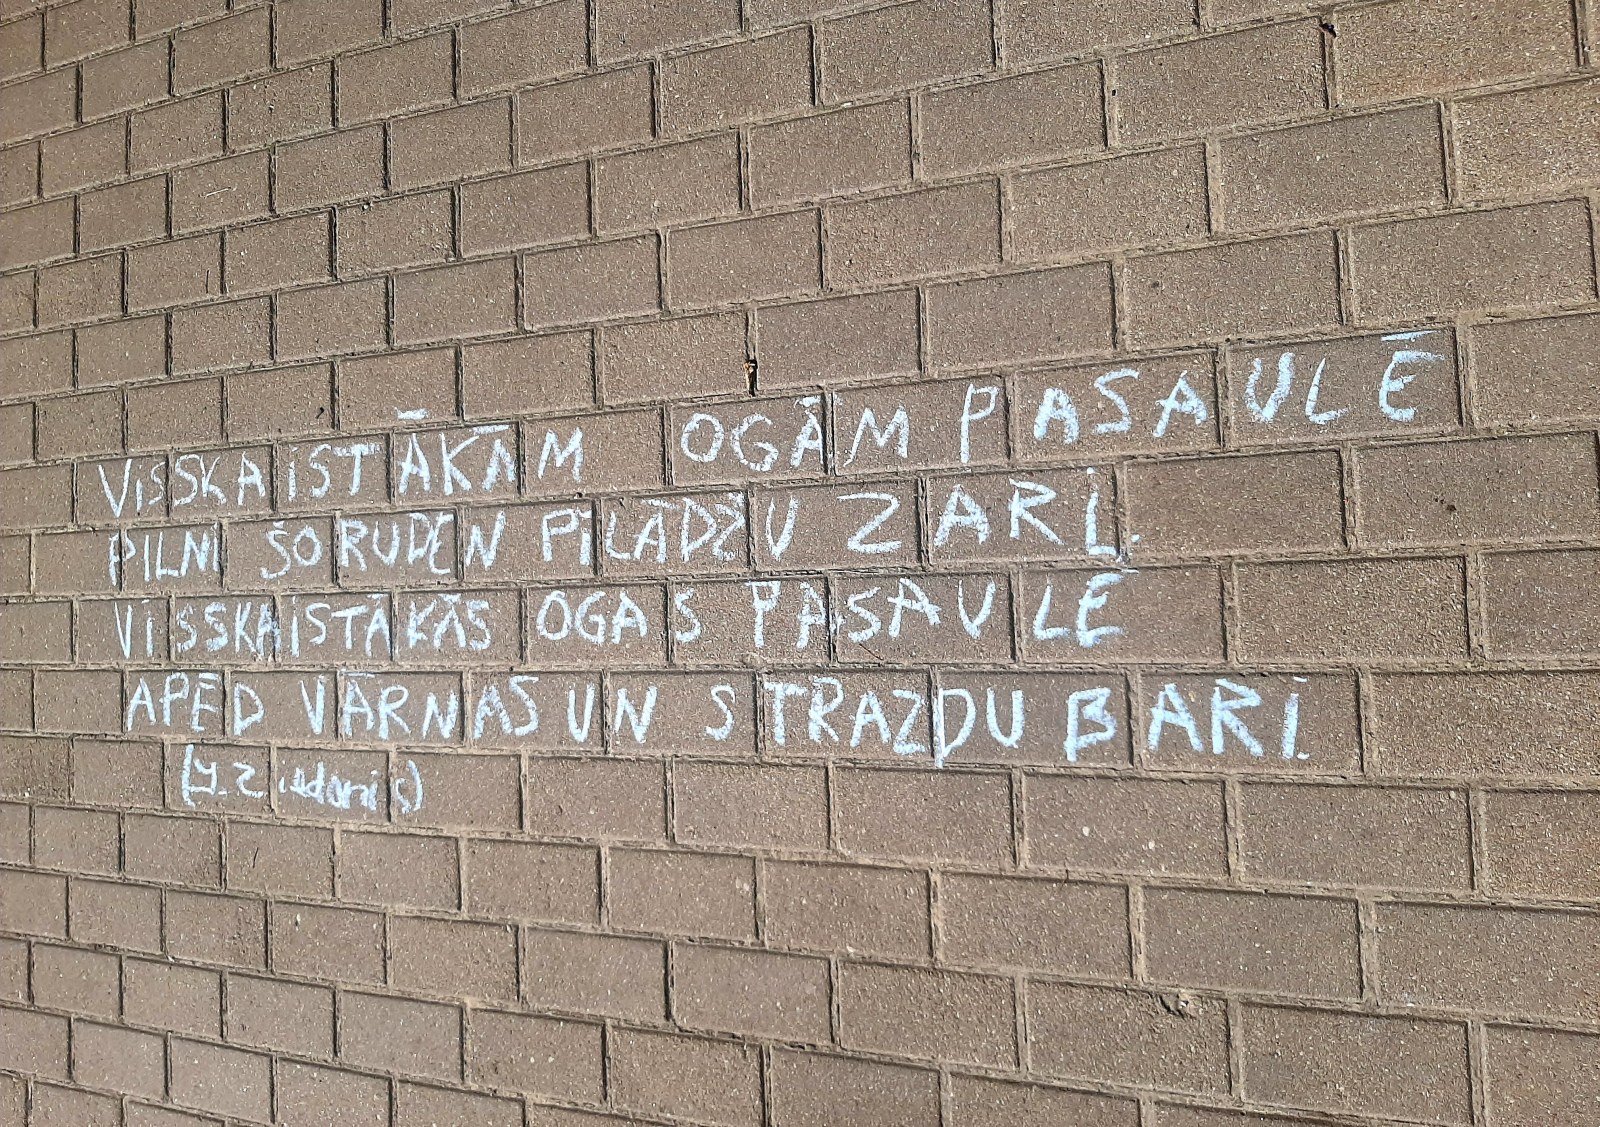 VISSKAISTĀKĀM OGĀM PASAULĒ
PILNI ŠORUDEN PĪLĀDŽU ZARI.
VISSKAISTĀKĀS OGAS PASAULĒ
APĒD VĀRNAS UN STRAZDU BARI.
(I. Ziedonis)